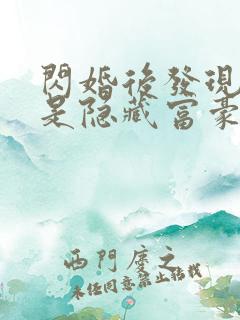 閃婚後發現
是隐藏富豪
西門慶之
未经同意禁止转载